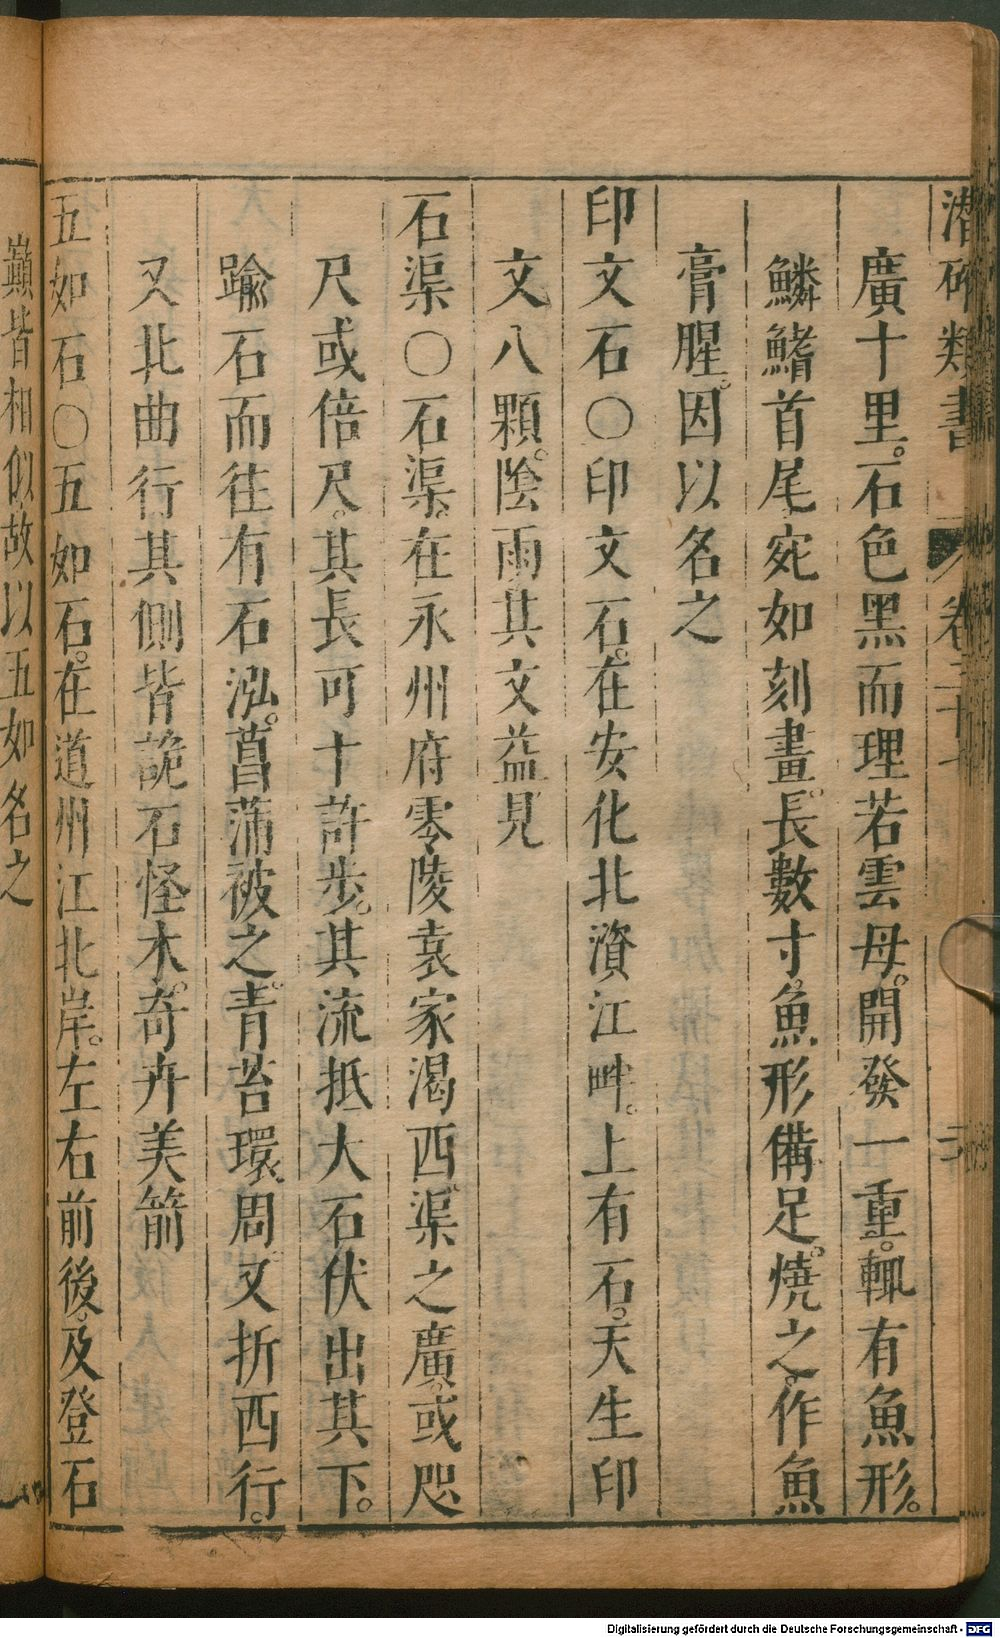 潛確類書 卷三十
廣十里。石色黑而理若雲母。開發一重。輒有魚形。
鱗鰭首尾宛如刻畫。長數寸。魚形備足。燒之作魚
膏腥。因以名之
印文石〇印文石。在安化北資江畔。上有石。天生印
文八顆。陰雨其文益見
石渠〇石渠。在永州府零陵袁家渴西。渠之廣。或咫
尺或倍尺。其長可十許步。其流抵大石伏出其下。
踰石而往有石泓。菖蒲被之。青苔環周。又折西行。
又北曲行其側皆詭石怪木。奇卉美箭
五如石〇五如石。在道州江北岸。左右前後。及登石
巔皆相似故以五如名之
Digitalisierung gefördert durch die Deutsche Forschungsgemeinschaft - DFG